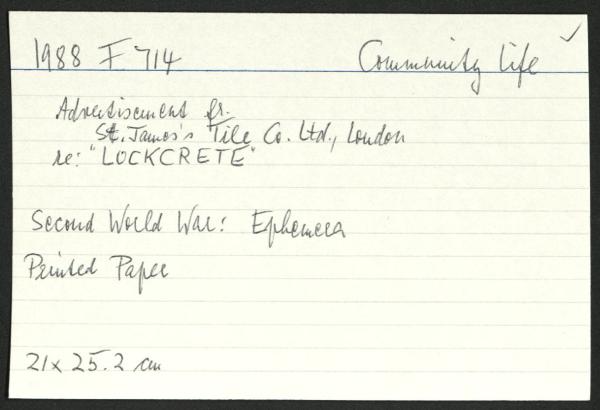 1988 F 714 Community life ✓
Advertisement fr.
St. James's Tile Co. Ltd., London
re: "LOCKCRETE"
Second World War: Ephemera
Printed Paper
21 x 25.2 cm